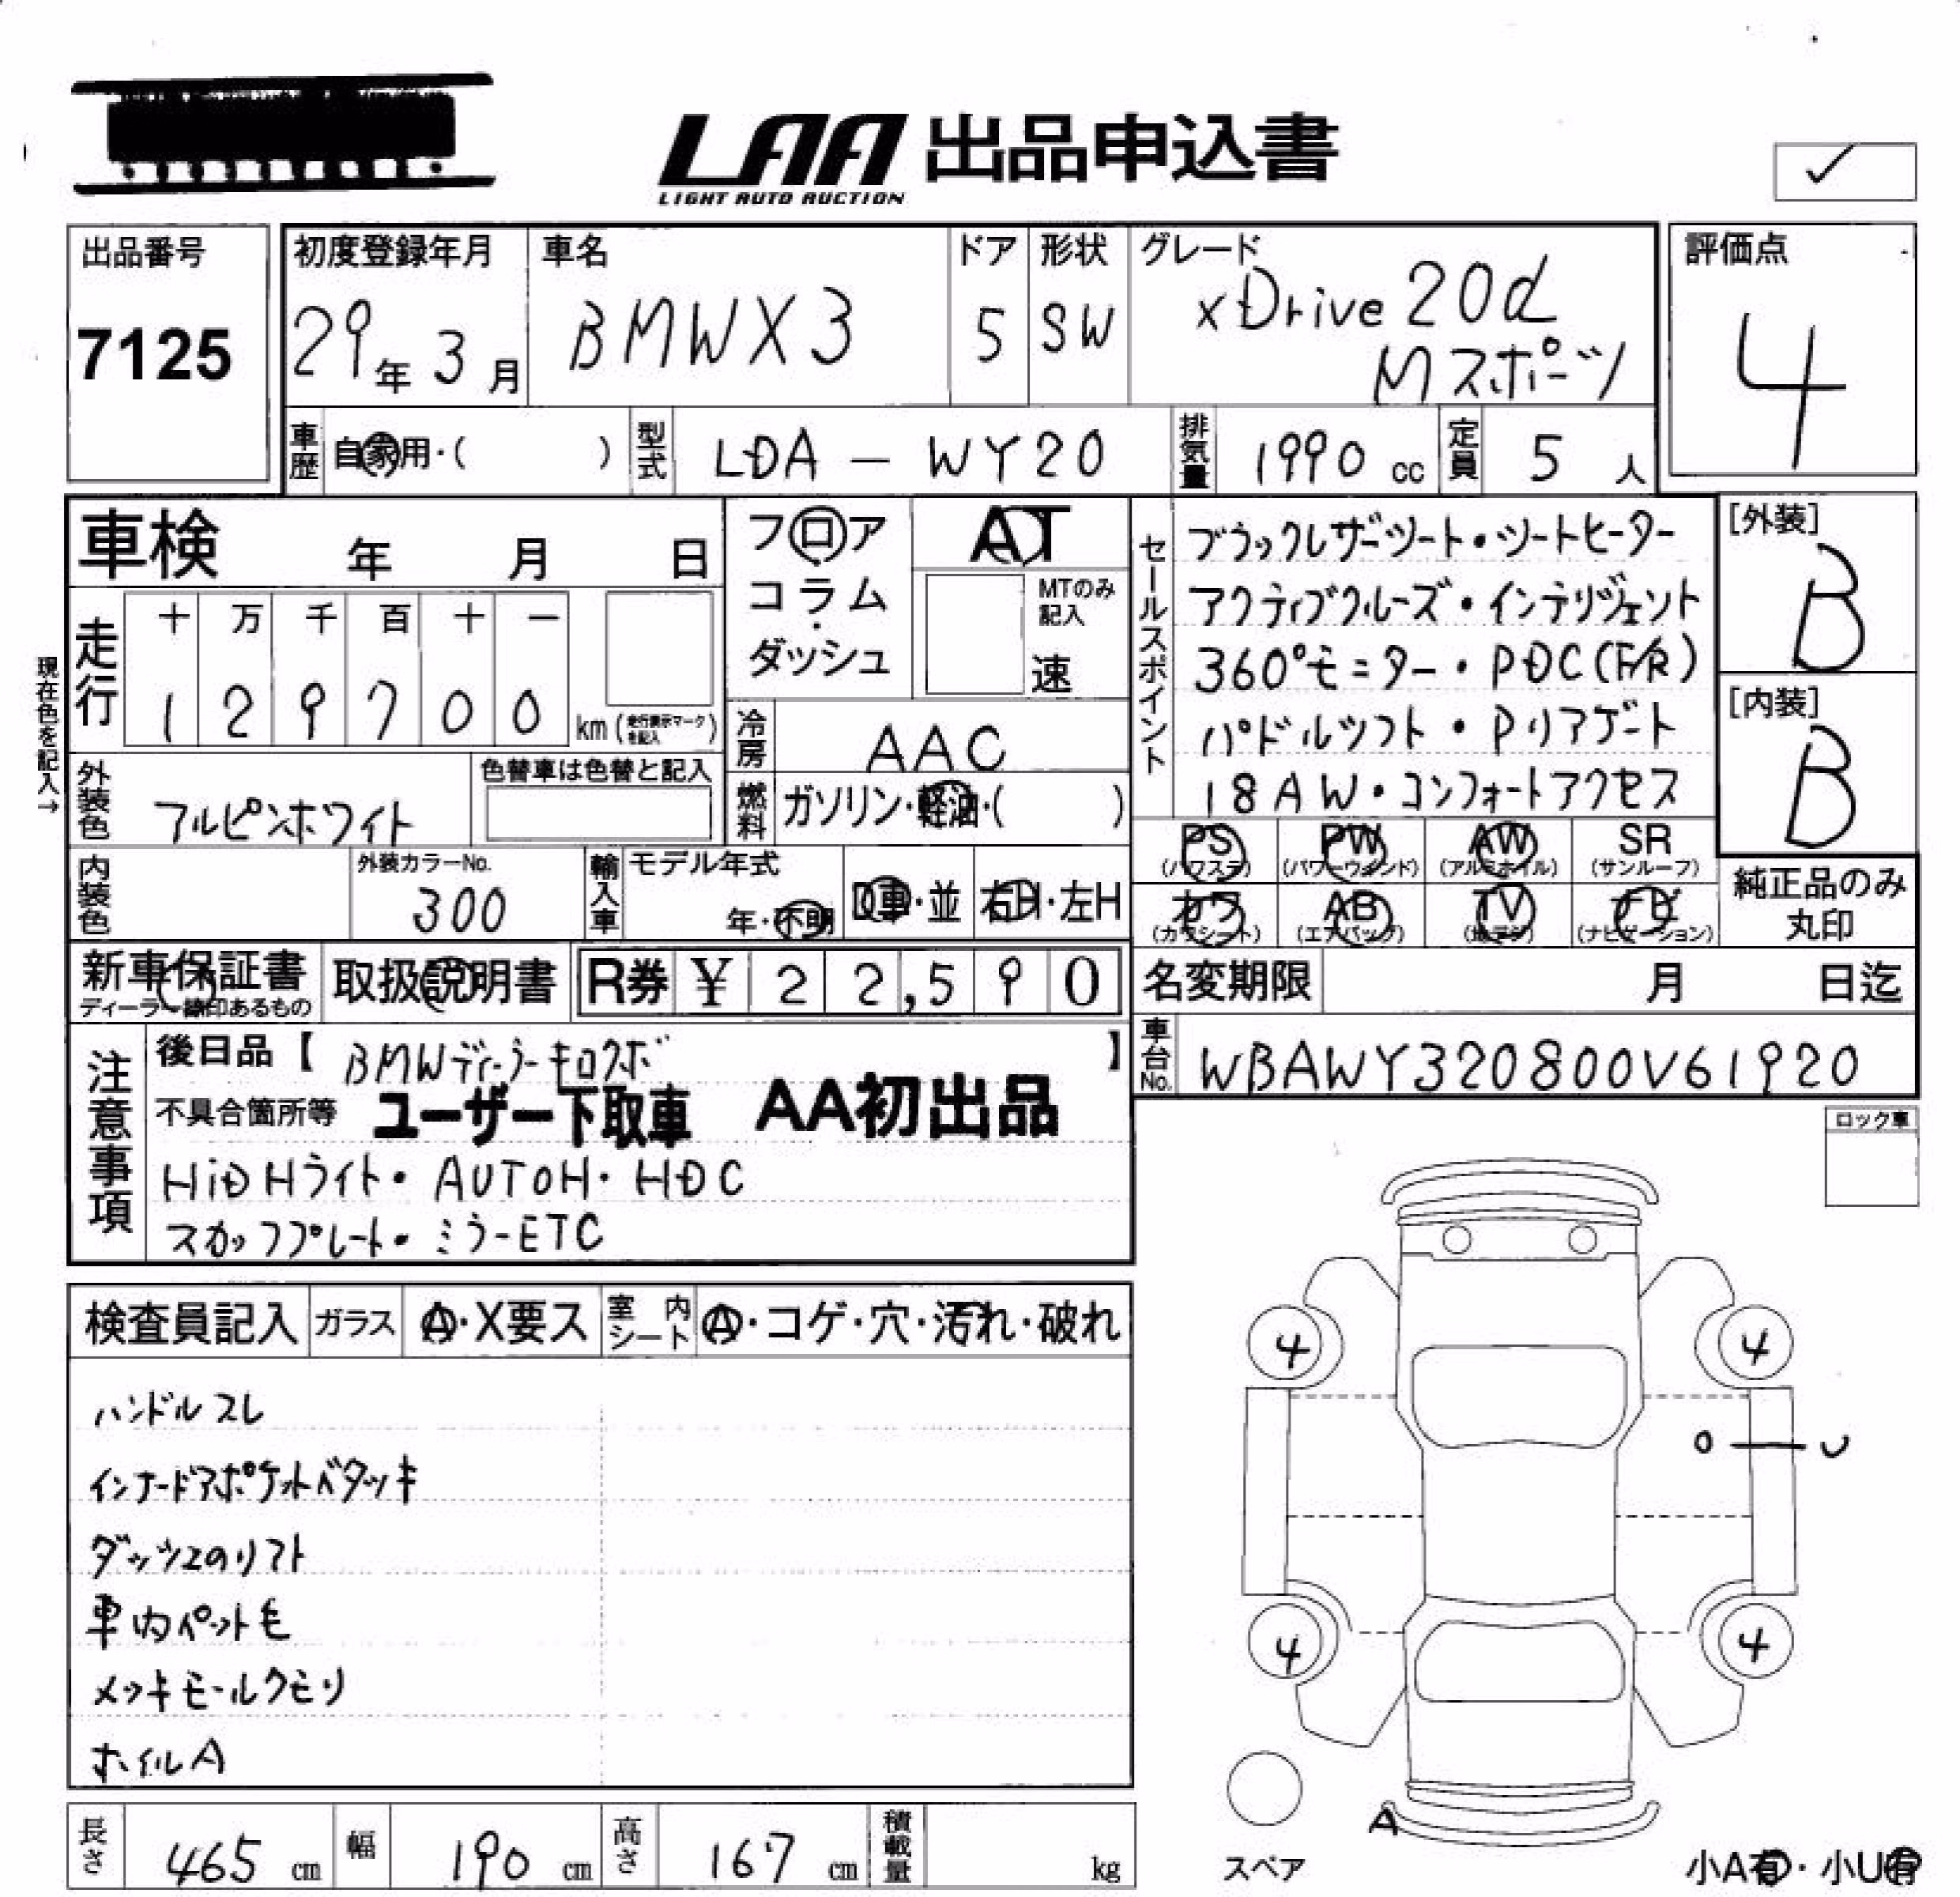 LAA 出品申込書
LIGHT AUTO AUCTION
✓
出品番号
7125
初度登録年月
29年3月
車名
BMWX3
ドア
5
形状
SW
グレード
xDrive 20d
Mスポーツ
評価点
4
車歴
自家用・( )
型式
LDA-WY20
排気量
1990 cc
定員
5 人
車検 年 月 日
フロア
コラム
・
ダッシュ
AT
MTのみ
記入
速
セールスポイント
ブラックレザーシート・シートヒーター
アクティブクルーズ・インテリジェント
360°モニター・PDC(F/R)
パドルシフト・Pリアゲート
18AW・コンフォートアクセス
[外装]
B
[内装]
B
現在色を記入→
走行
十 万 千 百 十 一
1 2 9 7 0 0
km(走行表示マークを記入)
冷房
AAC
外装色
アルピンホワイト
色替車は色替と記入
燃料
ガソリン・軽油・( )
PS
(パワステ)
PW
(パワーウィンド)
AW
(アルミホイル)
SR
(サンルーフ)
カワ
(カワシート)
AB
(エアバッグ)
TV
(地デジ)
ナビ
(ナビゲーション)
純正品のみ
丸印
内装色
外装カラーNo.
300
輸入車
モデル年式
年・不明
D車・並
右H・左H
新車保証書
ディーラー捺印あるもの
取扱説明書
R券 ¥ 22,590
名変期限 月 日迄
車台No.
WBAWY320800V61920
注意事項
後日品【BMWディーラーキロクボ】
不具合箇所等 ユーザー下取車 AA初出品
HiDHライト・AUTOH・HDC
スカッフプレート・ミラーETC
ロック車
検査員記入
ガラス
A・X要ス
室内シート
A・コゲ・穴・汚れ・破れ
ハンドルスレ
インナードアポケットベタツキ
ダッシュのリフト
車内ペット毛
メッキモールクモリ
ホイルA
4
4
U
4
4
A
スペア
小A有・小U有
長さ
465 cm
幅
190 cm
高さ
167 cm
積載量
kg